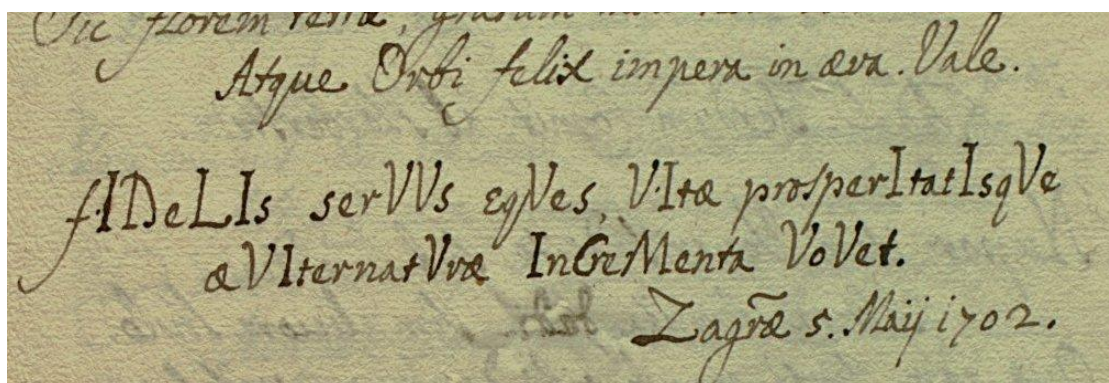 Sic florem terræ, gratum
Atque Orbi felix impera in æva. Vale.
fIDeLIs serVVs eqVes, VItæ prosperItatIsqVe
æVIternatVræ InCreMenta VoVet.
Zagr̃æ 5. Maij 1702.